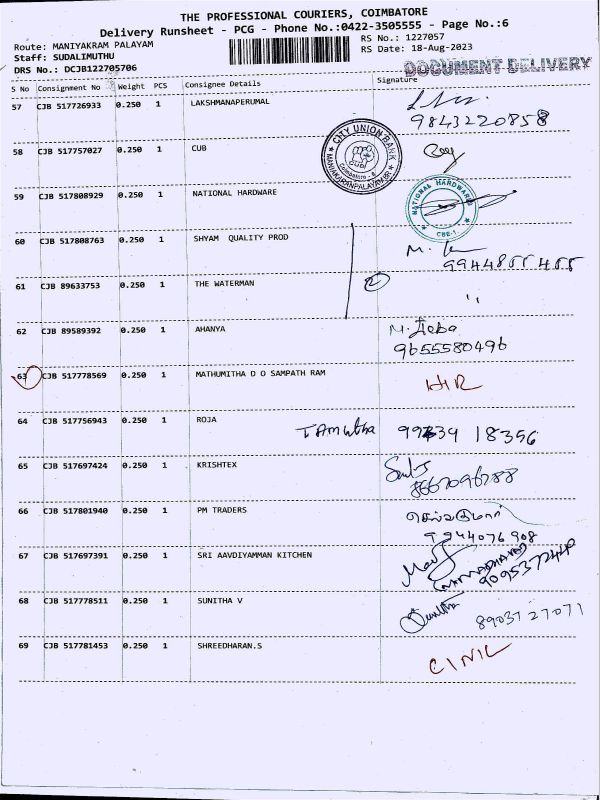 THE PROFESSIONAL COURIERS, COIMBATORE
Delivery Runsheet - PCG - Phone No.:0422-3505555 - Page No.:6
Route: MANIYAKRAM PALAYAM
RS No.: 1227057
Staff: SUDALIMUTHU
RS Date: 18-Aug-2023
DRS No.: DCJB122705706
DOCUMENT DELIVERY
S No Consignment No Weight PCS Consignee Details Signature
57 CJB 517726933 0.250 1 LAKSHMANAPERUMAL
9843220858
58 CJB 517757027 0.250 1 CUB
CITY UNION BANK
CUB
59 CJB 517808929 0.250 1 NATIONAL HARDWARE
NATIONAL HARDWARE
CBE-1
60 CJB 517808763 0.250 1 SHYAM QUALITY PROD
9944855455
61 CJB 89633753 0.250 1 THE WATERMAN
2
"
62 CJB 89589392 0.250 1 AHANYA
M. Deba
9655580496
63 CJB 517778569 0.250 1 MATHUMITHA D O SAMPATH RAM
64 CJB 517756943 0.250 1 ROJA
99439 18356
65 CJB 517697424 0.250 1 KRISHTEX
8667096788
66 CJB 517801940 0.250 1 PM TRADERS
செல்வகுமார்
9944076908
67 CJB 517697391 0.250 1 SRI AAVDIYAMMAN KITCHEN
68 CJB 517778511 0.250 1 SUNITHA V
Sunitha
8903727071
69 CJB 517781453 0.250 1 SHREEDHARAN.S